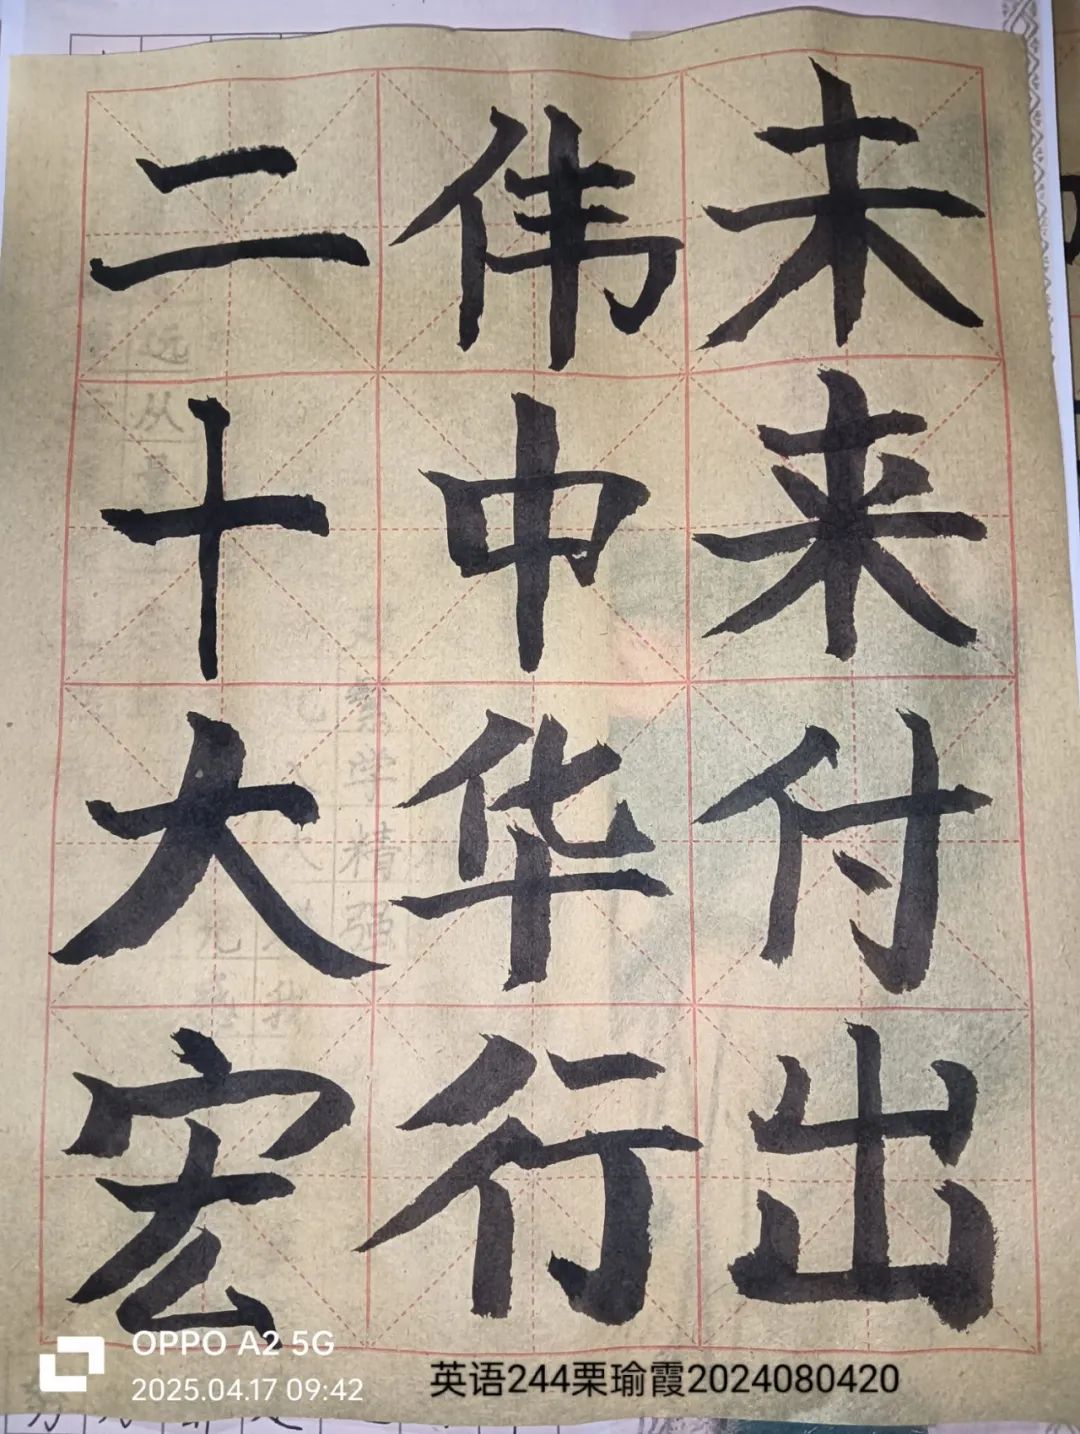 二十大宏
伟中华行
未来付出
远从
学精强
OPPO A2 5G
2025.04.17 09:42
英语244栗瑜霞2024080420